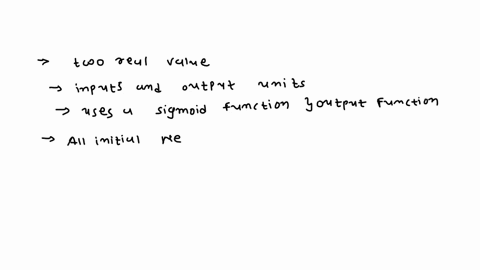 → two real value
→ inputs and output units
→ uses a sigmoid function } output function
→ All initial we